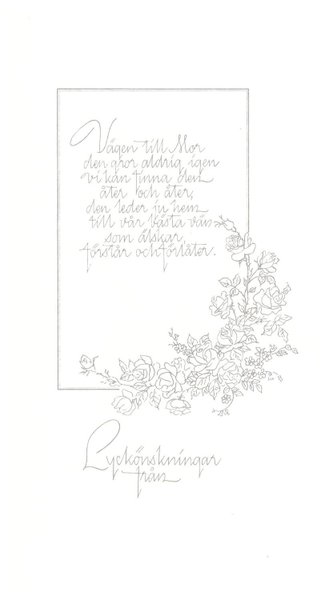 Vägen till Mor
den gror aldrig igen
vi kan finna den
åter och åter,
den leder ju hem
till vår bästa vän
som älskar,
förstår och förlåter.
Lyckönskningar
från